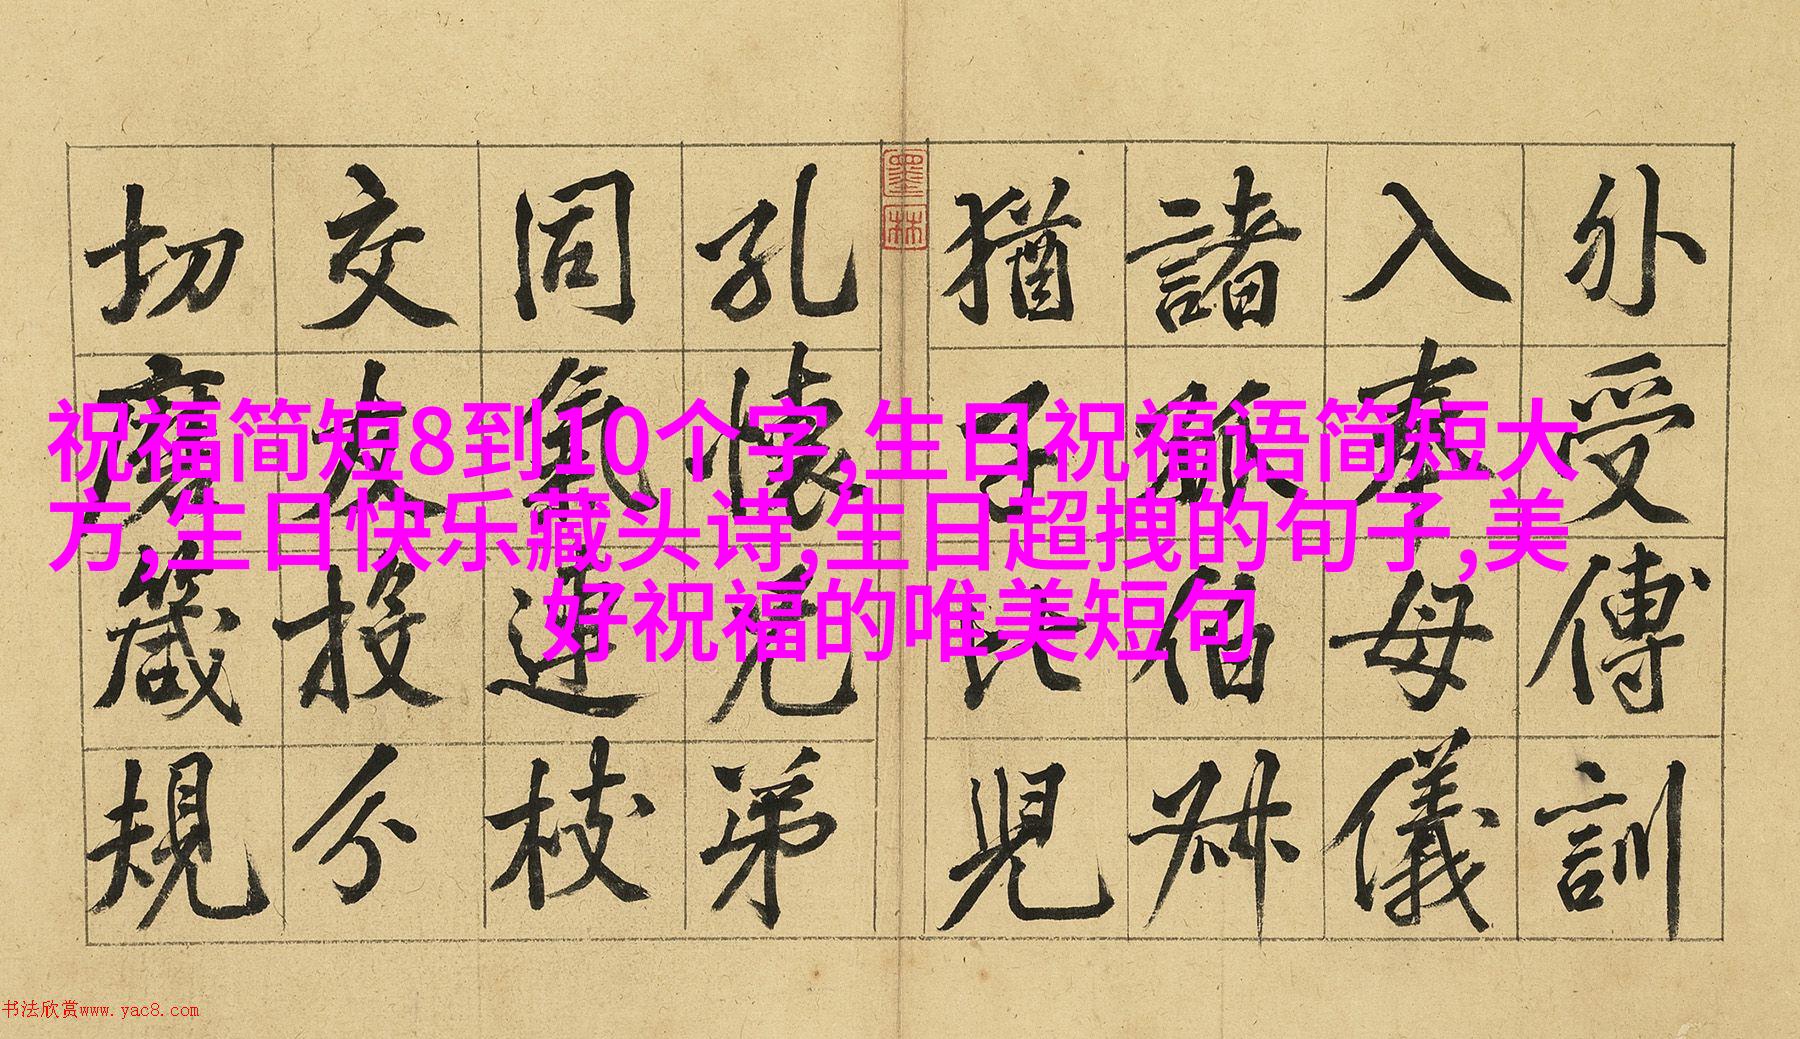 外受傅訓
入奉母儀
諸姑伯叔
猶子比兒
孔懷兄弟
同氣連枝
交友投分
切磨箴規
墨林
祝福简短8到10个字,生日祝福语简短大
方,生日快乐藏头诗,生日超拽的句子,美
好祝福的唯美短句
书法欣赏www.yac8.com